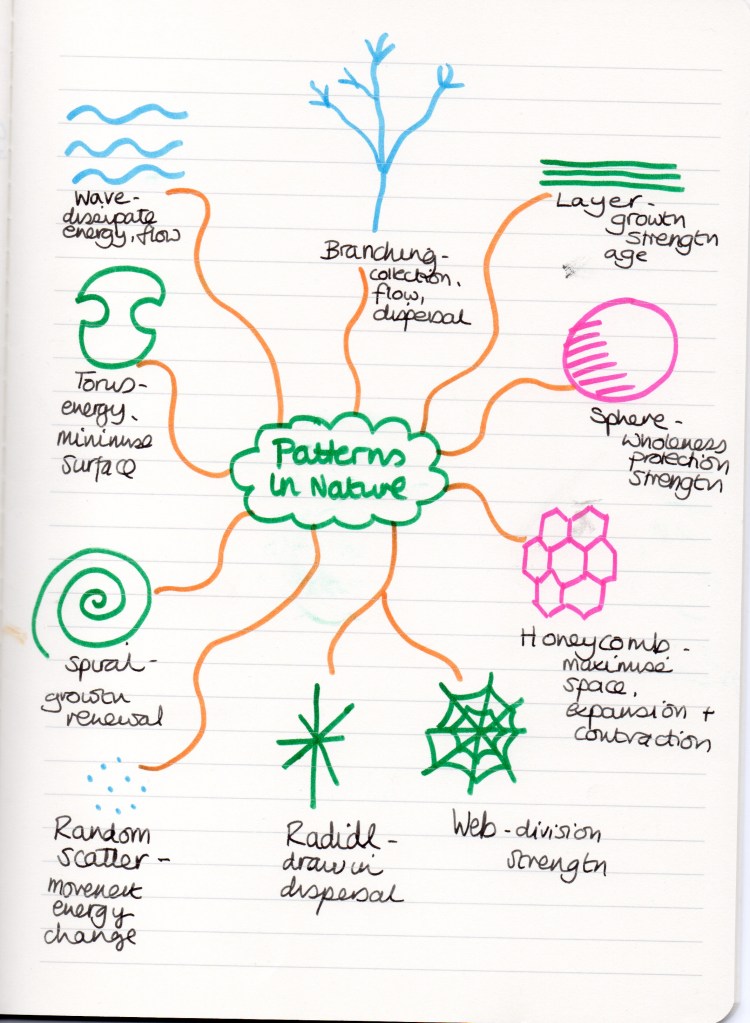 Wave-
dissipate
energy, flow
Branching-
collection,
flow,
dispersal
Layer-
growth
strength
age
Torus-
energy,
minimise
surface
Patterns
in Nature
Sphere-
wholeness
protection
strength
Spiral-
growth
renewal
Honeycomb-
maximise
space,
expansion +
contraction
Random
scatter-
movement
energy
change
Radial-
draw in
dispersal
Web-division
strength